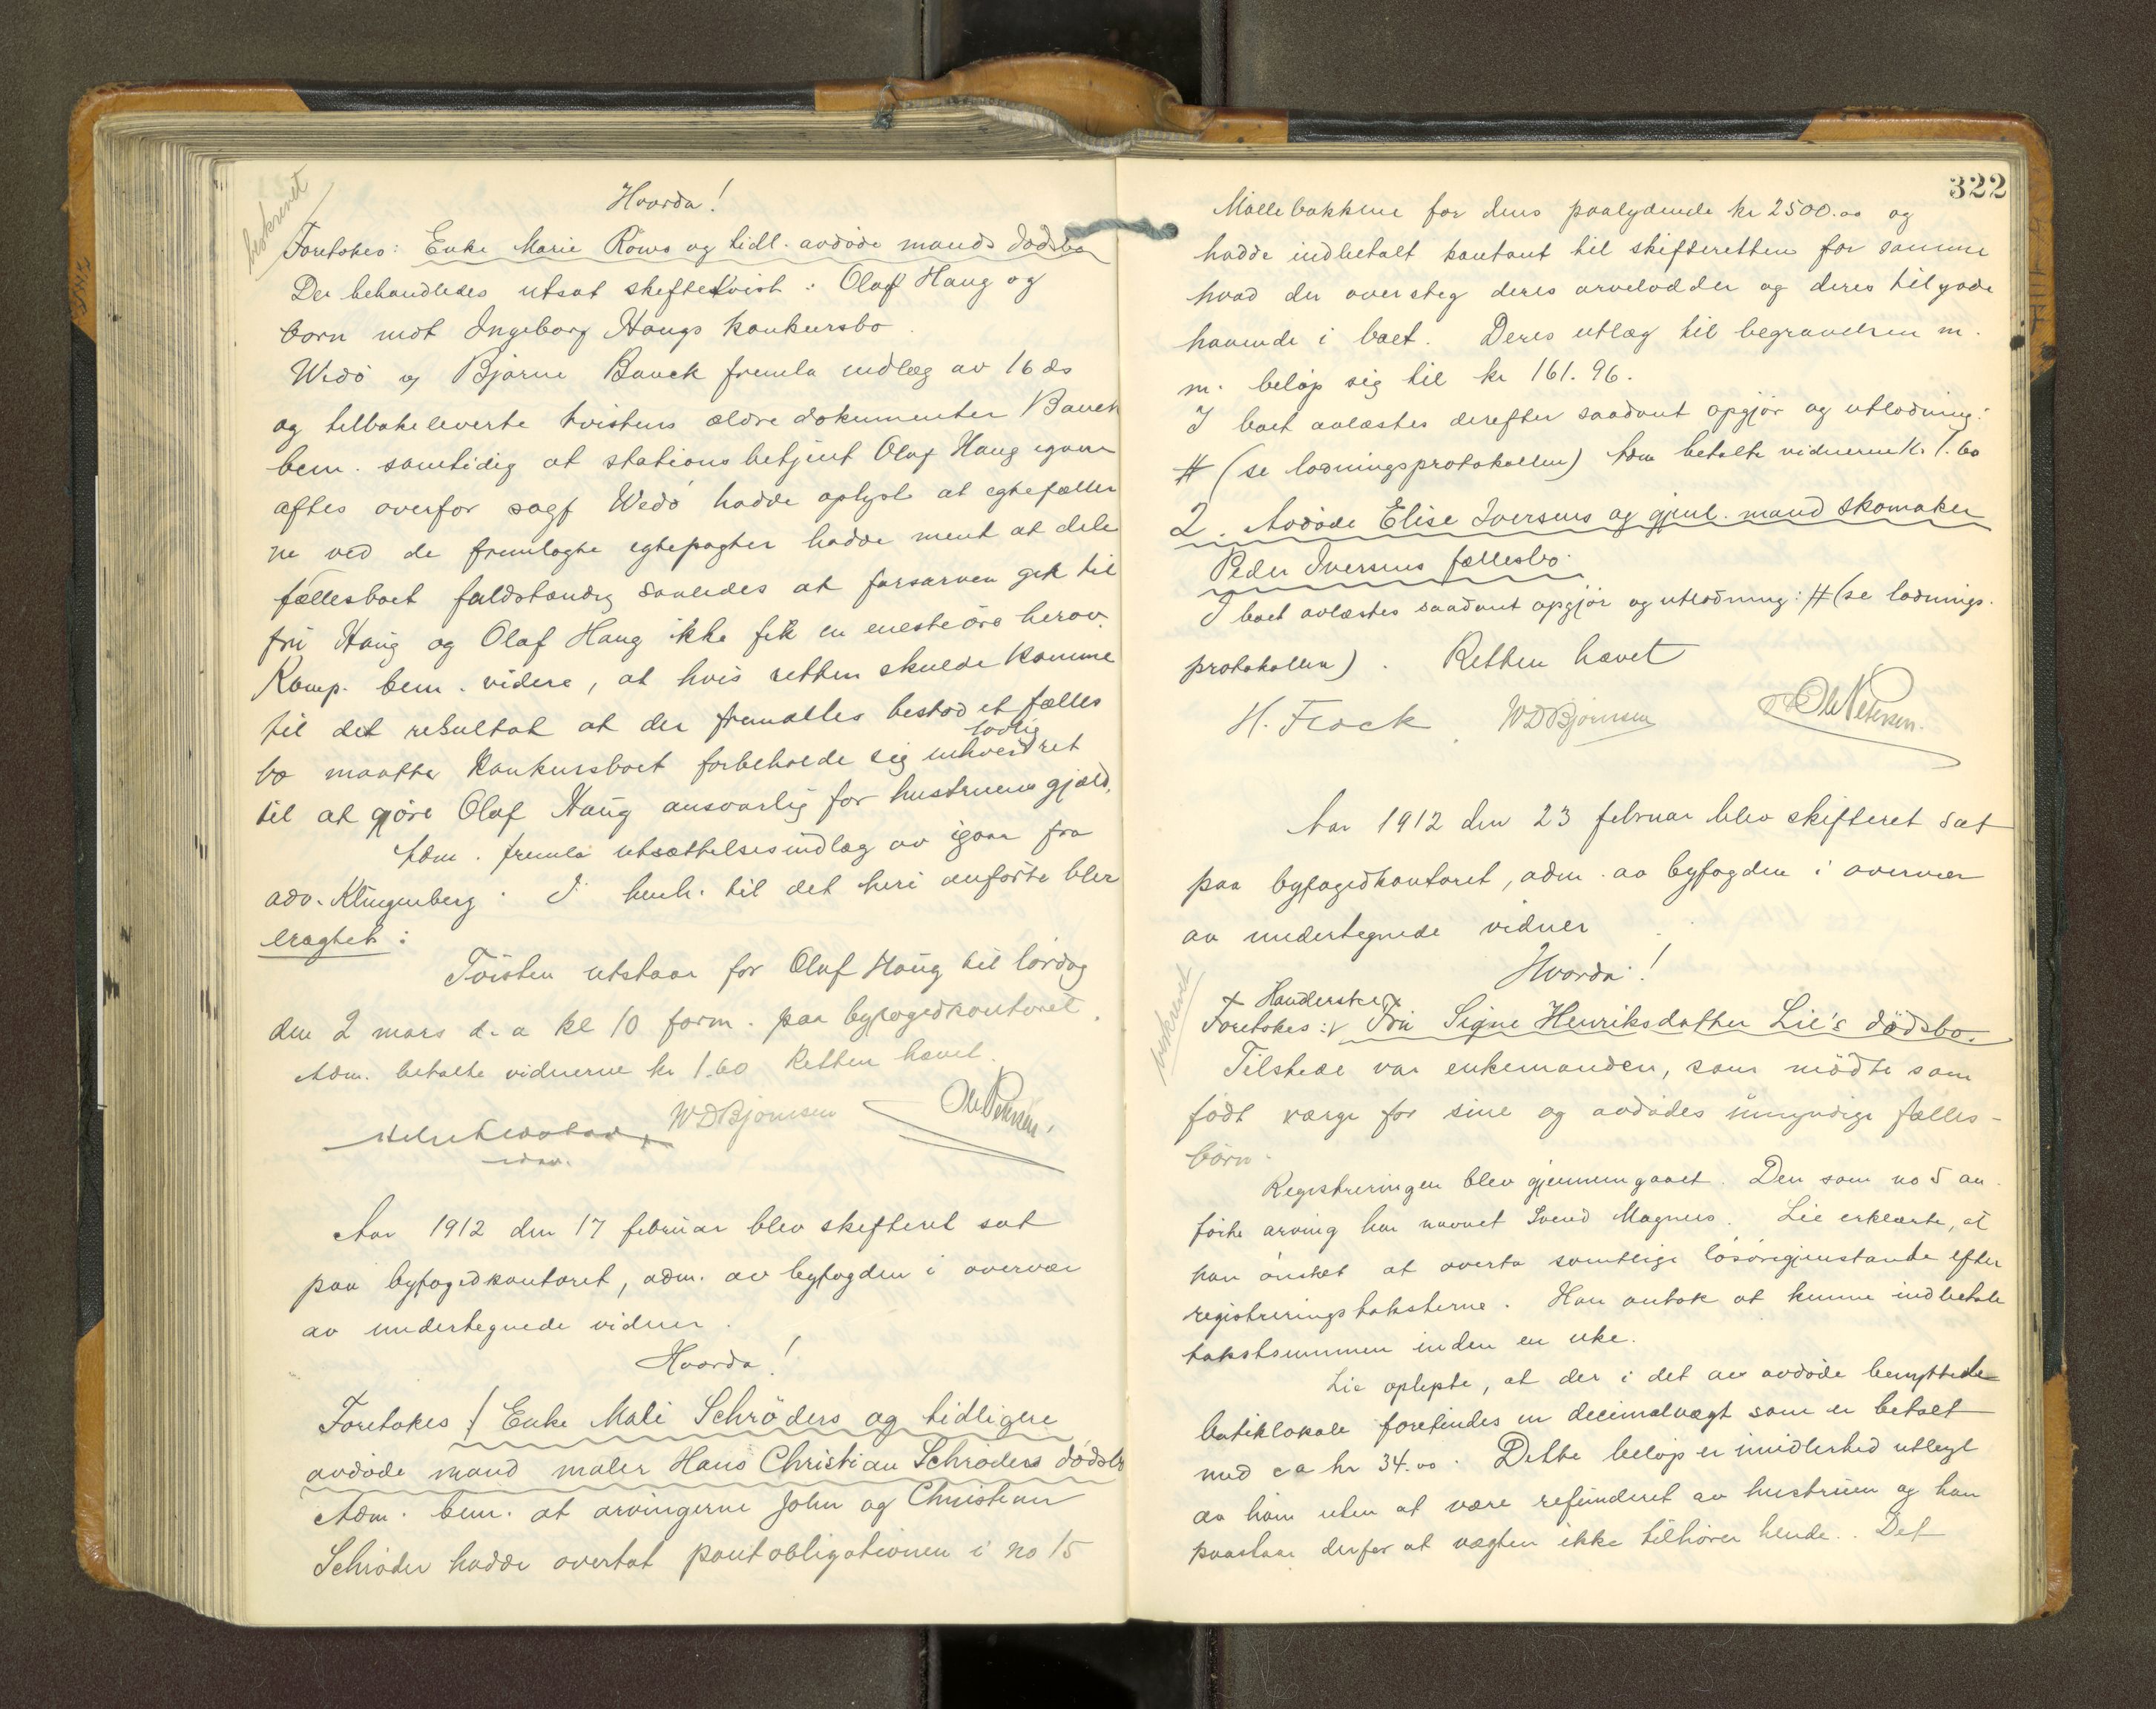 beskrevet
Hvorda!
Foretokes: Enke Marie Röws og tidl. avdöde mands dödsbo
Der behandledes utsat skiftetvist: Olaf Haug og
born mot Ingeborg Haugs konkursbo.
Wedö og Bjarne Bauck fremla indlæg av 16 ds
og tilbakeleverte tvistens ældre dokumenter Bauck
bem. samtidig at stationsbetjent Olaf Haug igaar
aftes overfor sagf Wedö hadde oplyst at egtefælle
ne ved de fremlagte egtepagter hadde ment at dele
fællesboet fuldstændig saaledes at farsarven gik til
fru Haug og Olaf Haug ikke fik en eneste öre herav.
Komp. bem. videre, at hvis retten skulde komme
til det resultat at der fremdeles bestod et fælles
bo maatte konkursboet forbeholde sig enhver lovlig ret
til at gjöre Olaf Haug ansvarlig for hustruens gjæld.
Adm. fremla utsættelsesindlæg av igaar fra
adv. Klingenberg. I henh. til det heri anförte blev
eragtet:
Tvisten utstaar for Olaf Haug til lördag
den 2 mars d. a kl 10 form. paa byfogedkontoret.
Adm. betalte vidnerne kr 1.60 Retten hævet.
WDBjörnsen Ole Petersen.
Aar 1912 den 17 februar blev skifteret sat
paa byfogedkontoret, adm. av byfogden i overvær
av undertegnede vidner.
Hvorda!
Foretokes 1/ Enke Mali Schröders og tidligere
avdöde mand maler Hans Christian Schröders dödsbo
Adm. bem. at arvingerne John og Christian
Schröder hadde overtat pantobligationen i no 15
322
Möllebakkene for dens paalydende kr 2500.00 og
hadde indbetalt kontant til skifteretten for samme
hvad der oversteg deres arvelodder og deres tilgode
havende i boet. Deres utlæg til begravelsen m.
m. belöp sig til kr 161.96.
I boet avlæstes derefter saadant opgjör og utlodning:
# (se lodningsprotokollen) Adm betalte vidnerne K. 1.60
2. Avdöde Elise Iversens og gjenl. mand skomaker
Peder Iversens fællesbo.
I boet avlæstes saadant opgjör og utlodning: # (se lodnings-
protokollen). Retten hævet
H. Frock. WDBjörnsen Ole Petersen.
Aar 1912 den 23 februar blev skifteret sat
paa byfogedkontoret, adm. av byfogden i overvær
av undertegnede vidner
Hvorda!
beskrevet
Handlerske
Foretokes: Fru Signe Henriksdatter Lie's dödsbo.
Tilstede var enkemanden, som mödte som
födt værge for sine og avdödes umyndige fælles-
börn.
Registreringen blev gjennemgaaet. Den som no 5 an
förte arving har navnet Svend Magnus. Lie erklærte, at
han önsket at overta samtlige lösöregjenstande efter
registreringstaksterne. Han antok at kunne indbetale
takstsummen inden en uke.
Lie oplyste, at der i det av avdöde benyttede
butiklokale forefindes en decimalvægt som er betalt
med ca kr 34.00. Dette belöp er imidlertid utlagt
av ham uten at være refunderet av hustruen og han
paastaar derfor at vægten ikke tilhörer hende. Det